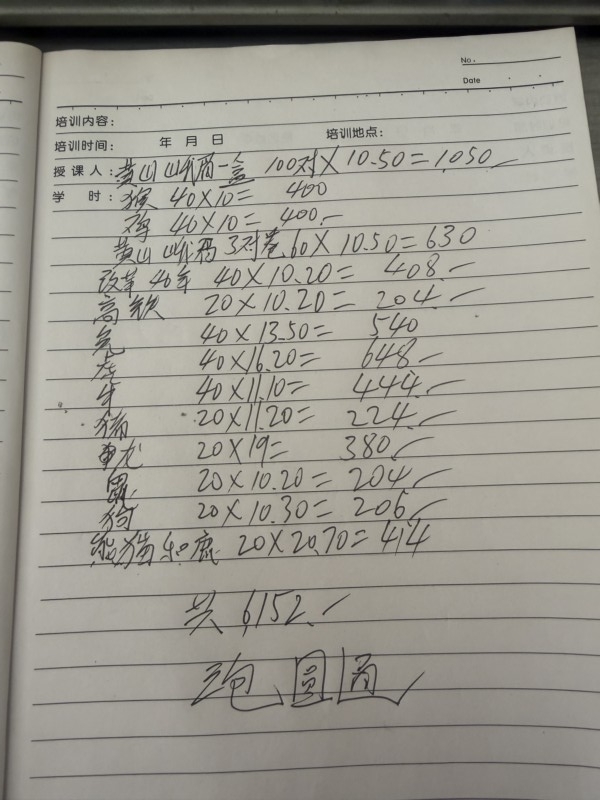 No.
Date
培训内容:
培训时间: 年 月 日 培训地点:
授课人: 黄山 一盒 100对×10.50=1050
学 时: 猴 40×10= 400
鸡 40×10= 400
黄山 3对卷 60×10.50=630
改革40年 40×10.20= 408
高铁 20×10.20= 204
40×13.50= 540
40×16.20= 648
牛 40×11.10= 444
猪 20×11.20= 224
20×19= 380
鼠 20×10.20= 204
狗 20×10.30= 206
熊猫和鹿 20×20.70=414
共 6152
圆